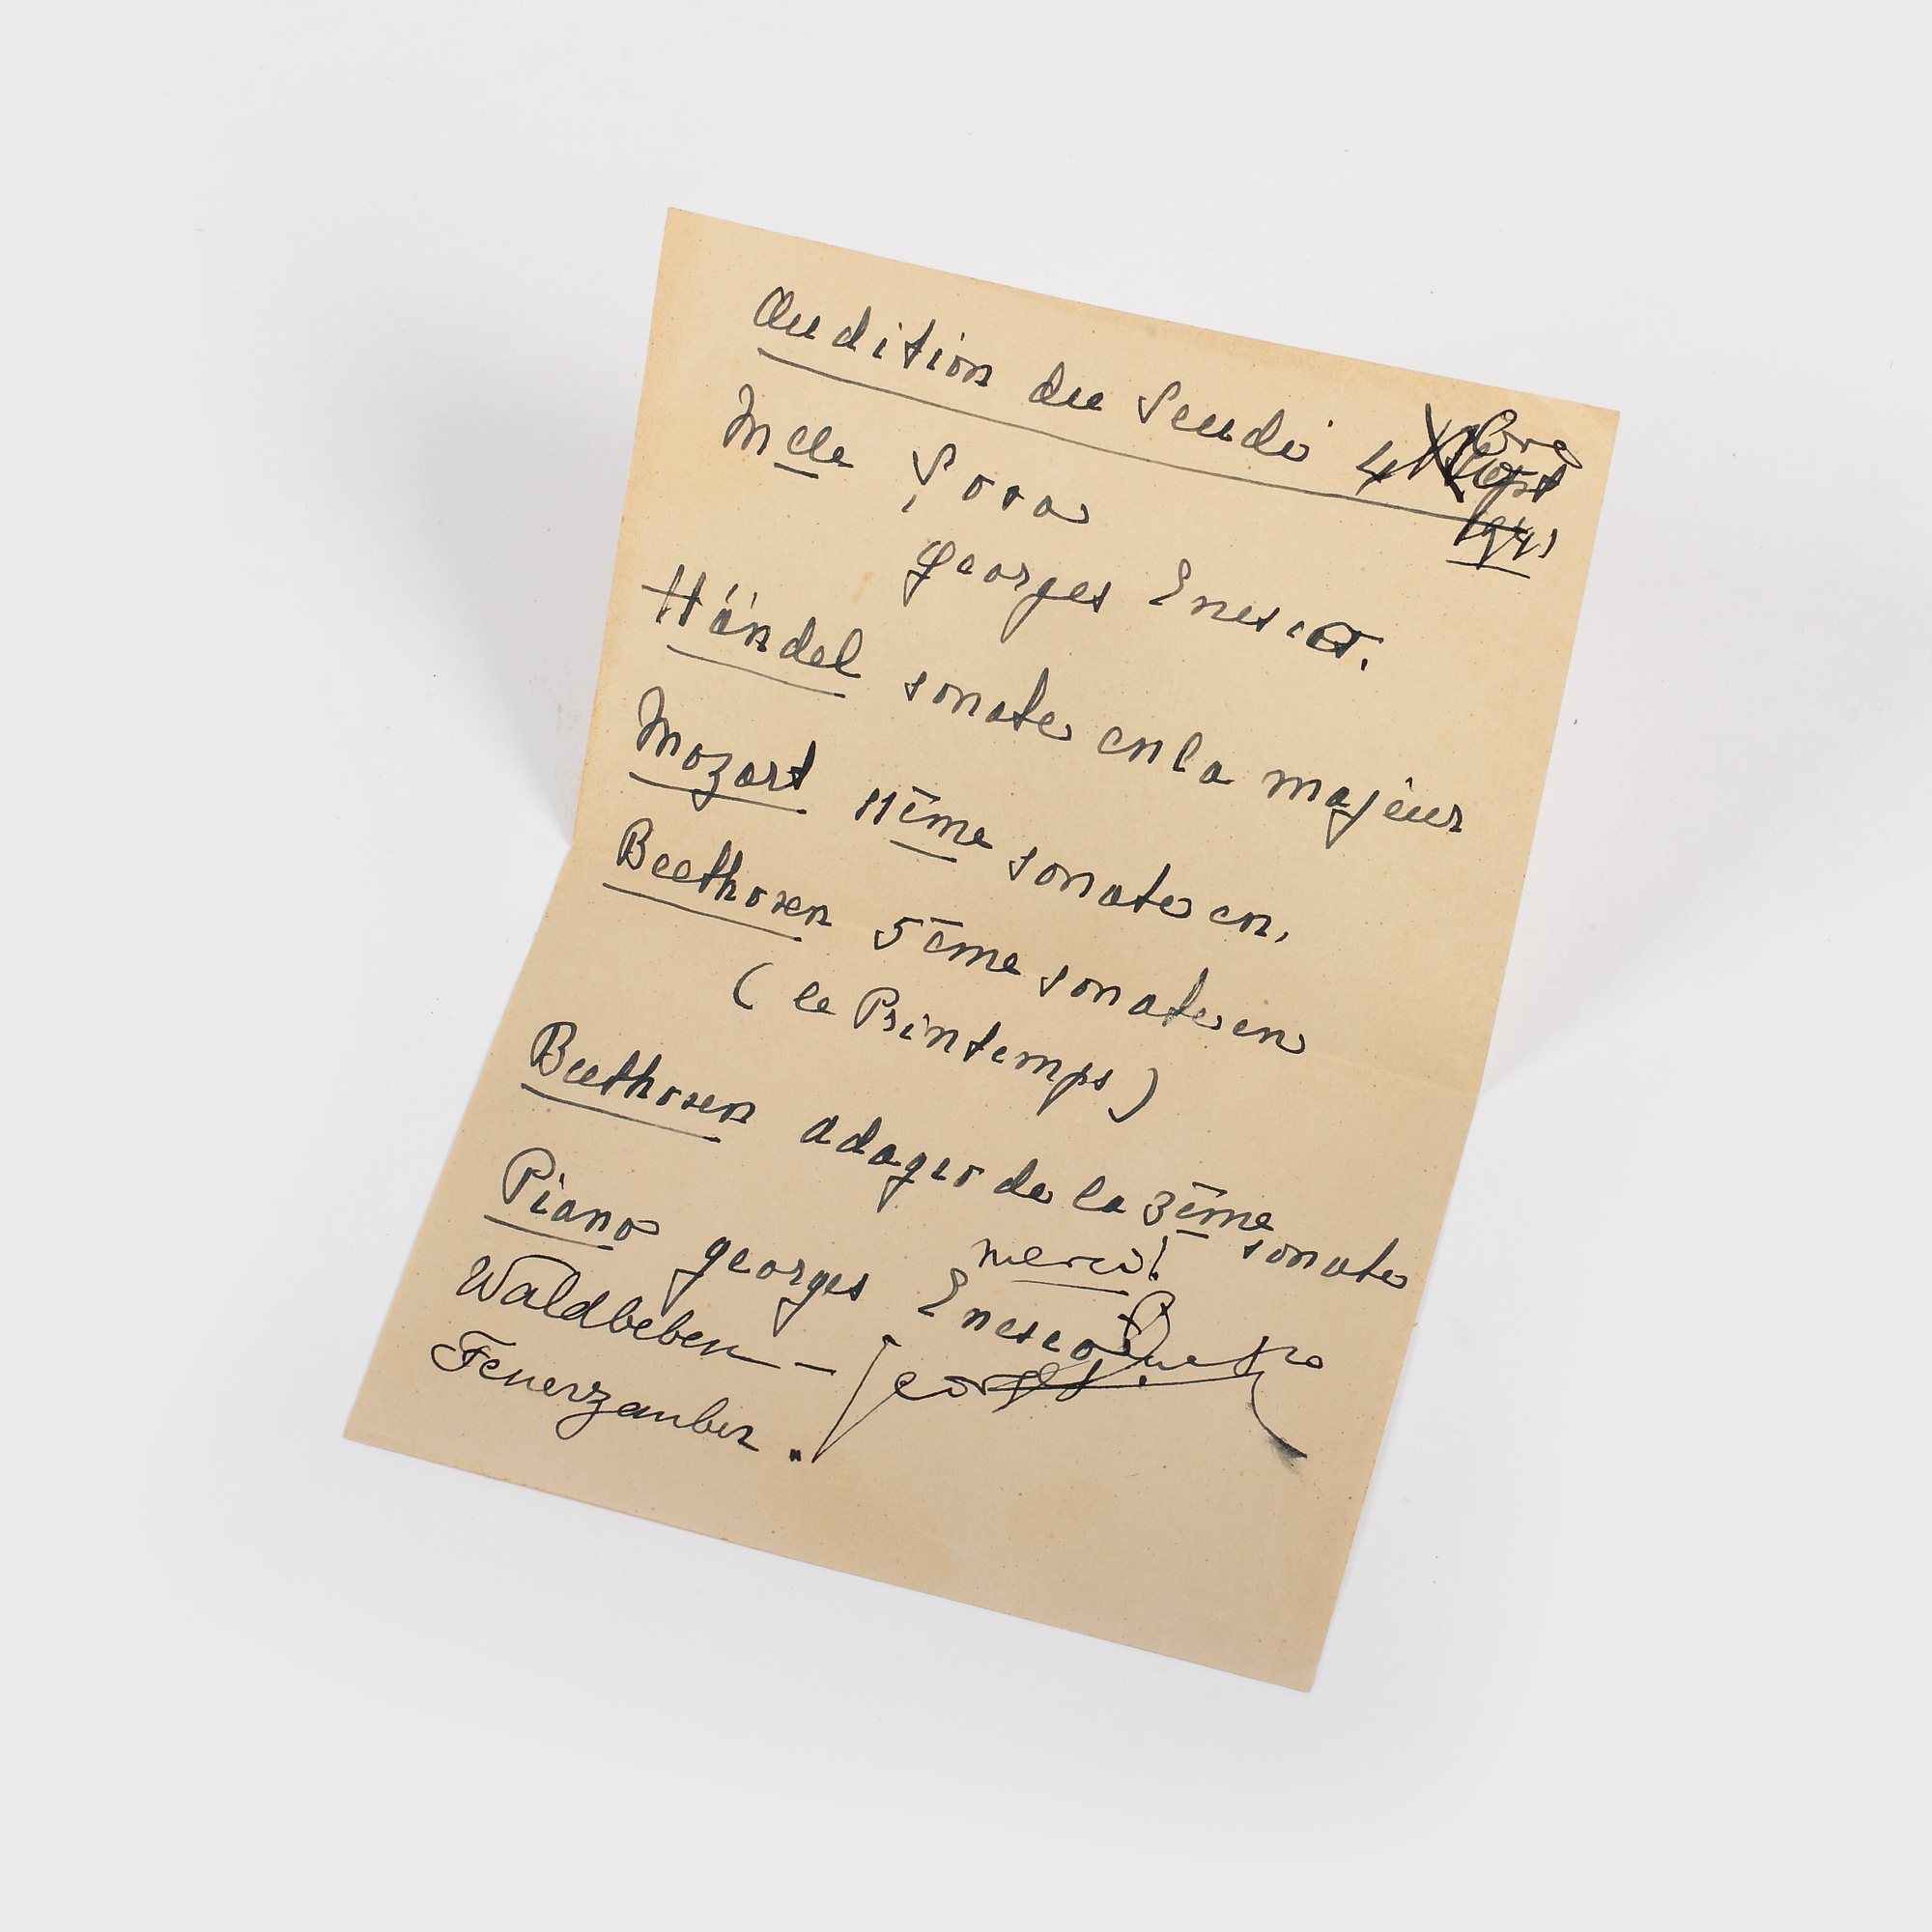 Audition du Jeudi 4 Xbre
1941
Mlle Sora
Georges Enesco.
Händel sonate en la majeur
Mozart 11ème sonate en,
Beethoven 5ème sonate en
(le Printemps)
Beethoven adagio de la 3ème sonate
merci!
Piano georges Enesco
Waldbeben – Georges Enesco
Feuerzauber.